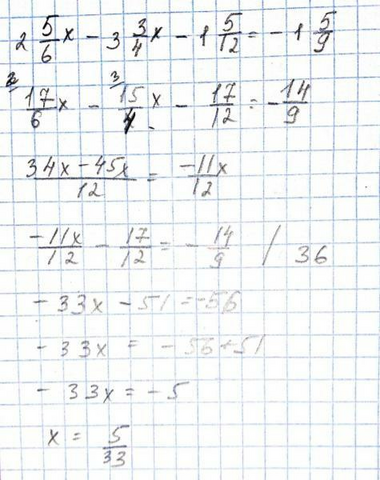 2 5/6 x - 3 3/4 x - 1 5/12 = - 1 5/9
2 17/6 x - 3 15/4 x - 17/12 = - 14/9
34x - 45x / 12 = -11x / 12
-11x/12 - 17/12 = - 14/9 / 36
- 33x - 51 = -56
- 33x = - 56 + 51
- 33x = - 5
x = 5/33